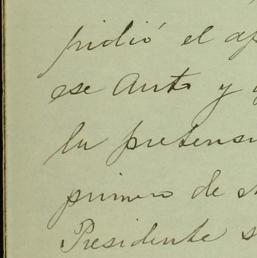 pidió el
ese Auto y
la pretensi
primero de
Presidente s